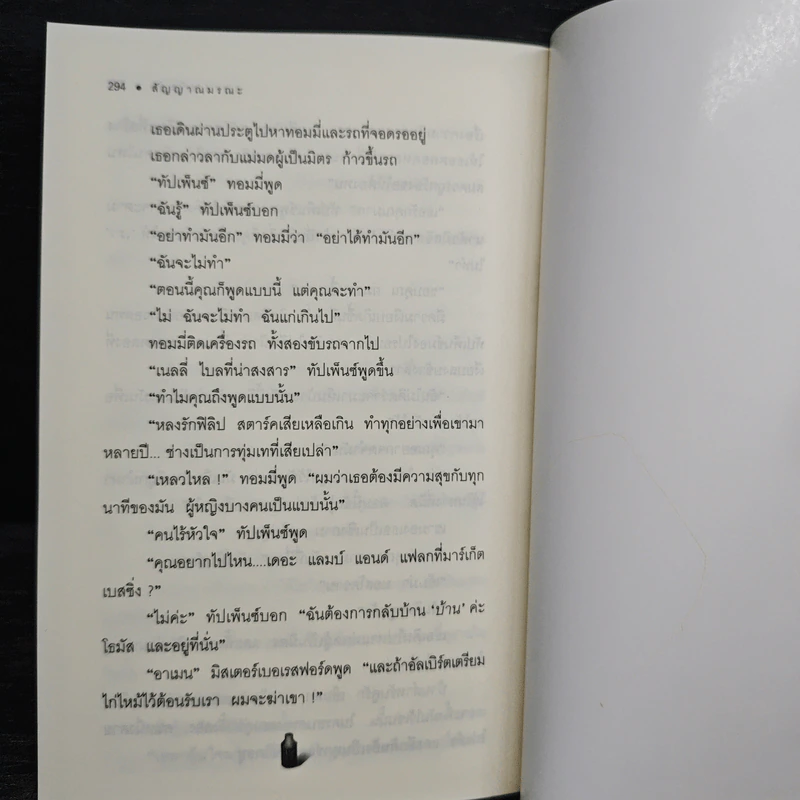 294 • สัญญาณมรณะ
เธอเดินผ่านประตูไปหาทอมมี่และรถที่จอดรออยู่
เธอกล่าวลากับแม่มดผู้เป็นมิตร ก้าวขึ้นรถ
“ทัปเพ็นซ์” ทอมมี่พูด
“ฉันรู้” ทัปเพ็นซ์บอก
“อย่าทำมันอีก” ทอมมี่ว่า “อย่าได้ทำมันอีก”
“ฉันจะไม่ทำ”
“ตอนนี้คุณก็พูดแบบนี้ แต่คุณจะทำ”
“ไม่ ฉันจะไม่ทำ ฉันแก่เกินไป”
ทอมมี่ติดเครื่องรถ ทั้งสองขับรถจากไป
“เนลลี่ ไบลที่น่าสงสาร” ทัปเพ็นซ์พูดขึ้น
“ทำไมคุณถึงพูดแบบนั้น”
“หลงรักฟิลิป สตาร์คเสียเหลือเกิน ทำทุกอย่างเพื่อเขามา
หลายปี... ช่างเป็นการทุ่มเทที่เสียเปล่า”
“เหลวไหล !” ทอมมี่พูด “ผมว่าเธอต้องมีความสุขกับทุก
นาทีของมัน ผู้หญิงบางคนเป็นแบบนั้น”
“คนไร้หัวใจ” ทัปเพ็นซ์พูด
“คุณอยากไปไหน....เดอะ แลมบ์ แอนด์ แฟลกที่มาร์เก็ต
เบสซิ่ง ?”
“ไม่ค่ะ” ทัปเพ็นซ์บอก “ฉันต้องการกลับบ้าน ‘บ้าน’ ค่ะ
โธมัส และอยู่ที่นั่น”
“อาเมน” มิสเตอร์เบอเรสฟอร์ดพูด “และถ้าอัลเบิร์ตเตรียม
ไก่ไหม้ไว้ต้อนรับเรา ผมจะฆ่าเขา !”